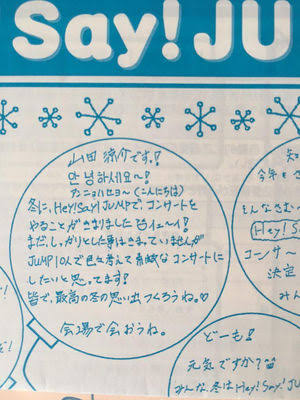 Say! JU
山田涼介です。!
안녕하세요~!
アンニョハセヨ〜(こんにちは)
冬に、Hey!Say!JUMPで、コンサートを
やることがきまりました
まだ、しっかりとした事はきまっていませんが
JUMP10人で色々考えて素敵なコンサートに
したいと思ってます!
皆で、最高の冬の思い出つくろうね。♡
会場で会おうね。
そんなさむ
Hey! Say
コンサー
決定
みん
どーも!
元気ですか?
みんな、冬はHey!Say!JU